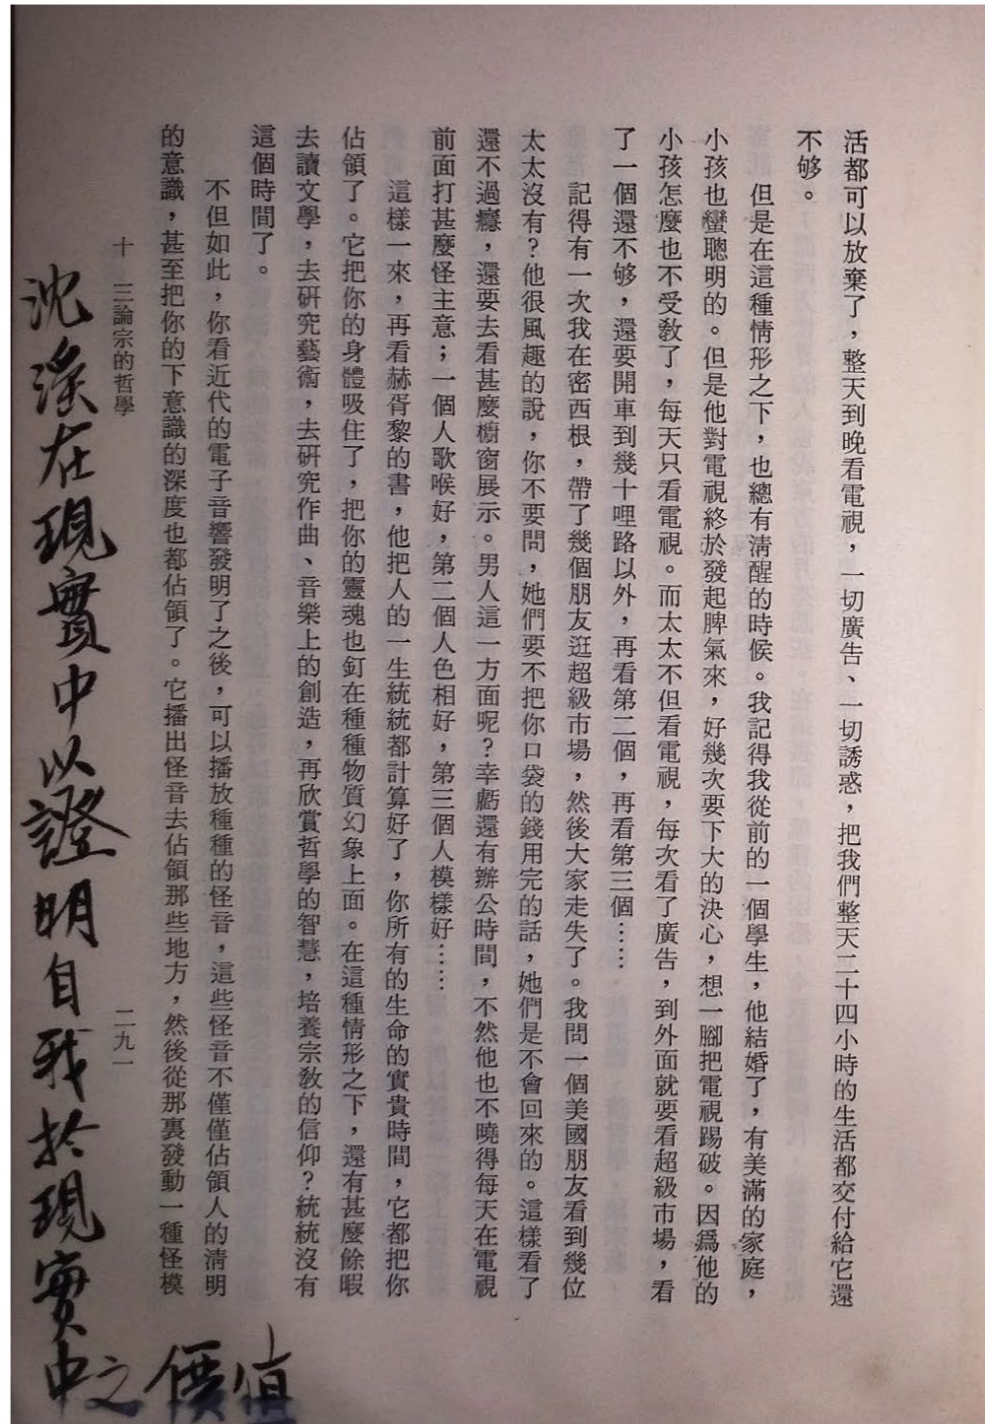 活都可以放棄了，整天到晚看電視，一切廣告、一切誘惑，把我們整天二十四小時的生活都交付給它還
不够。
但是在這種情形之下，也總有清醒的時候。我記得我從前的一個學生，他結婚了，有美滿的家庭，
小孩也蠻聰明的。但是他對電視終於發起脾氣來，好幾次要下大的決心，想一腳把電視踢破。因爲他的
小孩怎麼也不受教了，每天只看電視。而太太不但看電視，每次看了廣告，到外面就要看超級市場，看
了一個還不够，還要開車到幾十哩路以外，再看第二個，再看第三個……
記得有一次我在密西根，帶了幾個朋友逛超級市場，然後大家走失了。我問一個美國朋友看到幾位
太太沒有？他很風趣的說，你不要問，她們要不把你口袋的錢用完的話，她們是不會回來的。這樣看了
還不過癮，還要去看甚麼櫥窗展示。男人這一方面呢？幸虧還有辦公時間，不然他也不曉得每天在電視
前面打甚麼怪主意；一個人歌喉好，第二個人色相好，第三個人模樣好……
這樣一來，再看赫胥黎的書，他把人的一生統統都計算好了，你所有的生命的寶貴時間，它都把你
佔領了。它把你的身體吸住了，把你的靈魂也釘在種種物質幻象上面。在這種情形之下，還有甚麼餘暇
去讀文學，去研究藝術，去研究作曲、音樂上的創造，再欣賞哲學的智慧，培養宗教的信仰？統統沒有
這個時間了。
不但如此，你看近代的電子音響發明了之後，可以播放種種的怪音，這些怪音不僅僅佔領人的清明
的意識，甚至把你的下意識的深度也都佔領了。它播出怪音去佔領那些地方，然後從那裏發動一種怪模
十 三論宗的哲學
二九一
沈淫在現實中以證明自我於現實中之價值